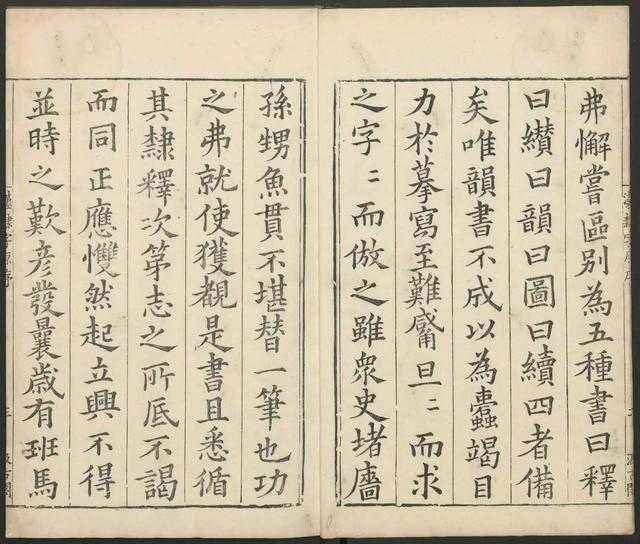 弗懈嘗區别為五種書曰釋
曰纘曰韻曰圖曰續四者備
矣唯韻書不成以為蠹竭目
力於摹寫至難旦〻而求
之字〻而倣之雖衆史堵廧
孫甥魚貫不堪替一筆也功
之弗就使獲觀是書且悉循
其隸釋次第志之所底不謁
而同正應然起立興不得
並時之歎彦發曩歲有班馬